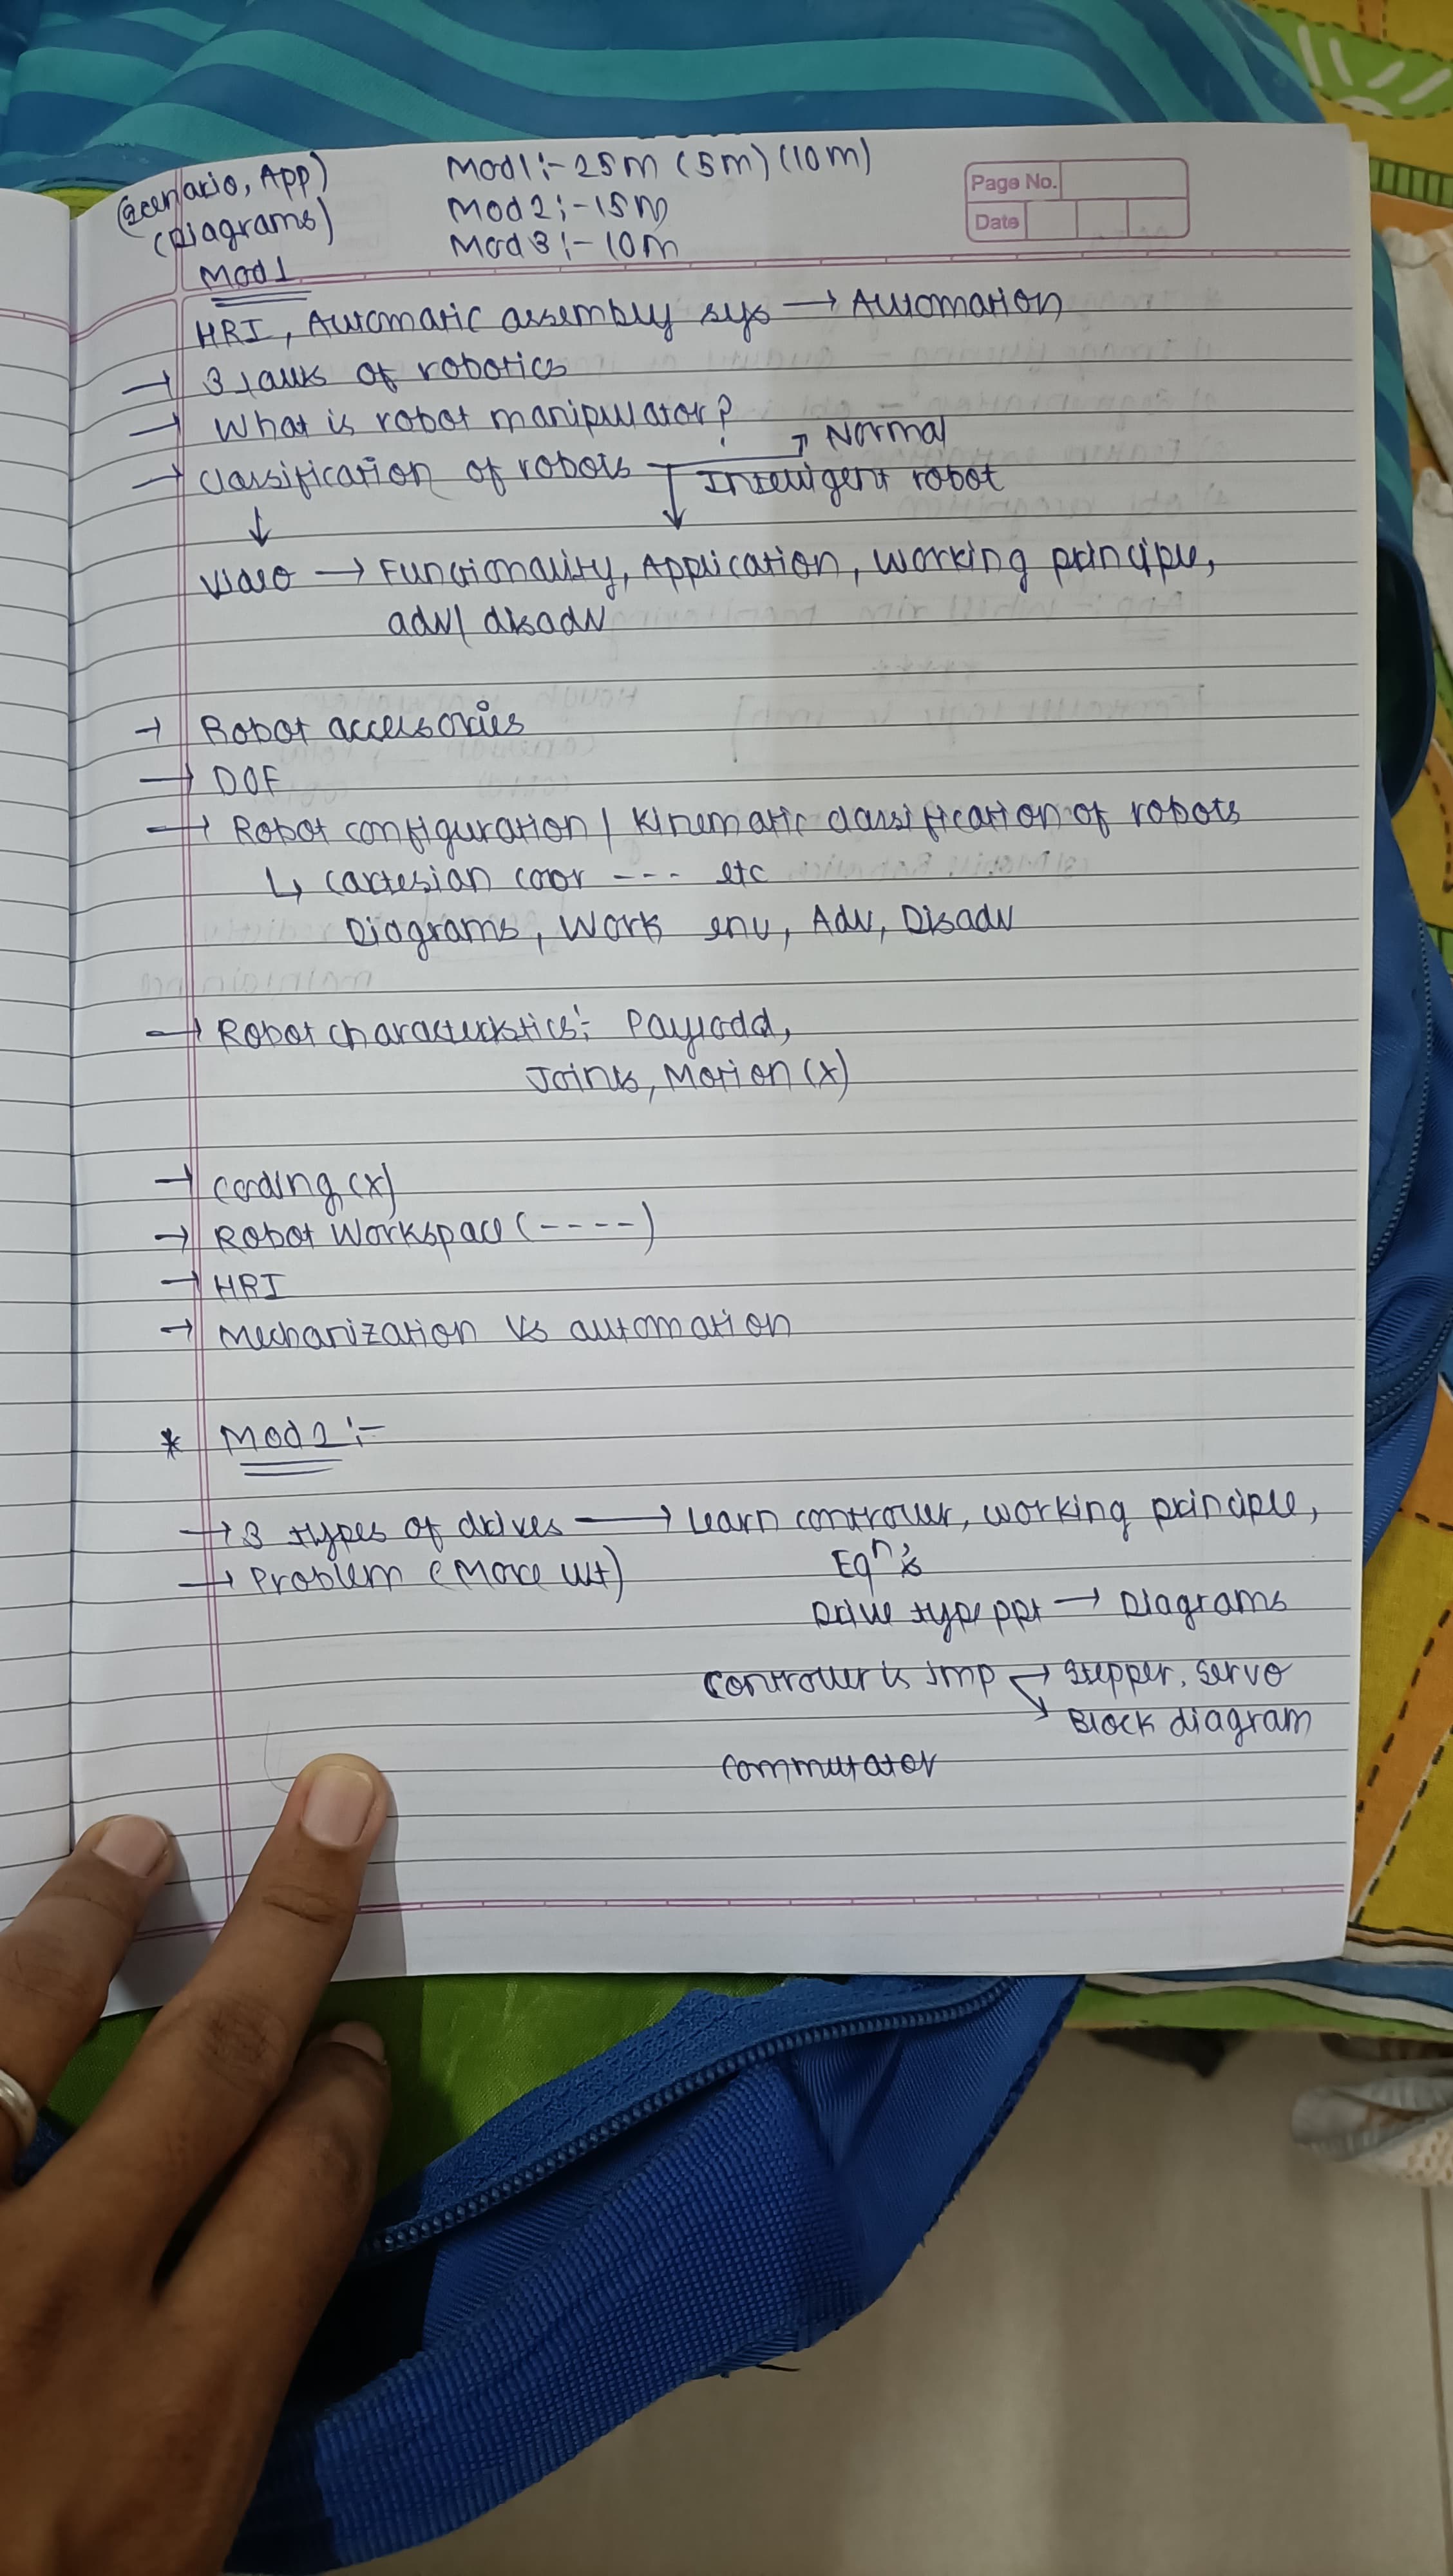 (Scenario, App)
(Diagrams)
Mod1:- 25m (5m) (10m)
Mod2:- 15m
Mod3:- 10m
Page No.
Date
Mod1
HRI, Automatic assembly sys → Automation
→ 3 laws of robotics
→ What is robot manipulator?
→ Classification of robots → Normal
Intelligent robot
↓
Video → Functionality, Application, Working principle,
adv/ disadv
→ Robot accessories
→ DOF
→ Robot configuration / Kinematic classification of robots
↳ Cartesian coor --- etc
Diagrams, Work env, Adv, Disadv
→ Robot characteristics:- Payload,
Joints, Motion (x)
→ Coding (x)
→ Robot Workspace (----)
→ HRI
→ Mechanization Vs automation
* Mod2:-
→ 3 types of drives → Learn controller, working principle,
→ Problem (More wt) Eqⁿ's
Drive type ppt → Diagrams
Controller is Imp → Stepper, Servo
→ Block diagram
Commutator